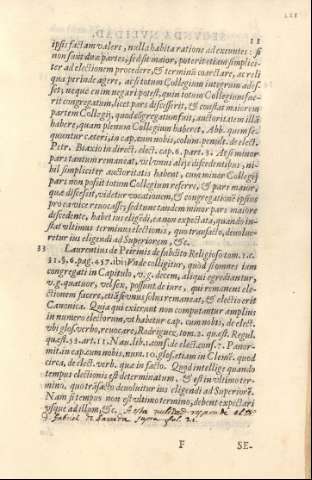 SEGVNDA NVLIDAD.
ipsis factam valere, nulla habita ratione ad exeuntes: si
non sunt duæ partes, sed est maior, poterit etiam simplici-
ter ad electionem procedere, & terminũ coarctare, ac reli
qua perinde agere, ac si totum Collegium integrum adis-
set; neque enim negari potest, quin totum Collegium fue-
rit congregatum, licet pars discesserit, & constat maiorem
partem Collegij, quod egregatum fuit, auctoritatem illã
habere, quam plenum Collegium haberet, Abb. quem se-
quuntur cæteri, in cap. cum nobis, colum. penult. de elect.
Petr. Biaxio in direct. elect. cap. 6. part. 3. At si minor
pars tantum remaneat, vel vnus alijs discedentibus, ni-
hil simpliciter auctoritatis habent, cum minor Collegij
pars non possit totum Collegium referre, & pars maior,
quæ discessit, videtur vocationem, & congregationẽ ipsius
pro ea vice renocasse, sed tunc tandem minor pars maiore
discedente, habet ius eligẽdi, ea non expectata, quando in-
stat vltimus terminus electionis, quo transacto, deuolue-
retur ius eligendi ad Superiorem, &c.
33 Laurentius de Peirinis de subdito Religioso tom. 1. c.
31. §. 6. pag. 457. ibi: Vnde colligitur, quod si omnes iam
congregati in Capitulo, v.g. decem, aliqui egrediantur,
v.g. quatuor, vel sex, possunt de iure, qui remanent ele-
ctionem facere, etiã si vnus solus remaneat, & electio erit
Canonica. Quia qui exierunt non computantur amplius
in numero electorum, vt habetur cap. cum nobis, de elect.
vbi glos. verbo, reuocare, Rodriguez, tom. 2. quæst. Regul.
quæst. 53. art. 11. Nau. lib. 1. cons. de elect. cons. 7. Panor-
mit. in cap. cum nobis, num. 10. glos. etiam in Clemẽ. quod
circa, de elect. verb. quæ in facto. Quod intellige quando
tempus electionis est determinatum, & est in vltimo ter-
mino, quo trãsacto deuoluitur ius eligendi ad Superiorẽ.
Nam si tempus non est vltimo termino, debent expectari
vsque ad illum, &c. A esta nulidad responde el Dr
Gabriel de supra fol. 21.
F SE-